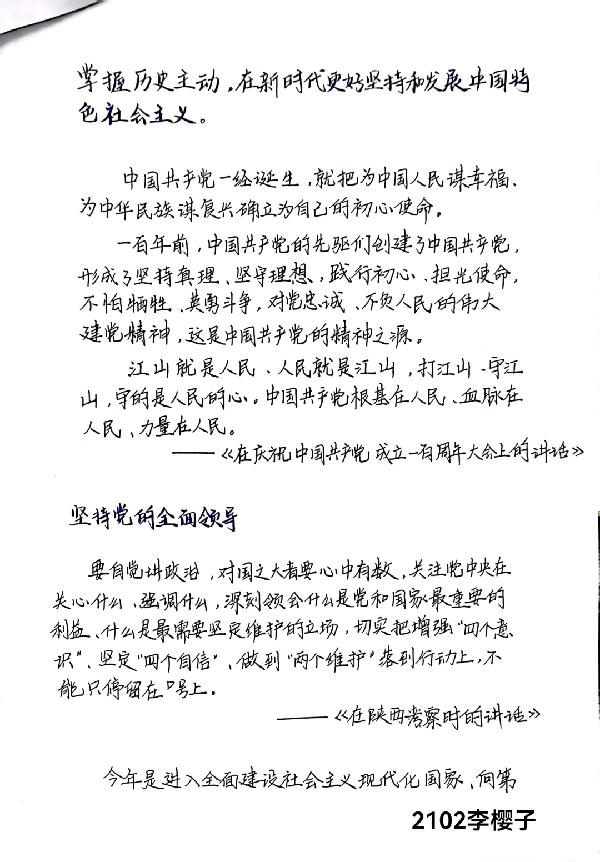 掌握历史主动，在新时代更好坚持和发展中国特
色社会主义。
中国共产党一经诞生，就把为中国人民谋幸福、
为中华民族谋复兴确立为自己的初心使命。
一百年前，中国共产党的先驱们创建了中国共产党，
形成了坚持真理、坚守理想，践行初心、担当使命，
不怕牺牲、英勇斗争，对党忠诚、不负人民的伟大
建党精神，这是中国共产党的精神之源。
江山就是人民、人民就是江山，打江山、守江
山，守的是人民的心。中国共产党根基在人民、血脉在
人民、力量在人民。
——《在庆祝中国共产党成立一百周年大会上的讲话》
坚持党的全面领导
要自觉讲政治，对国之大者要心中有数，关注党中央在
关心什么、强调什么，深刻领会什么是党和国家最重要的
利益、什么是最需要坚定维护的立场，切实把增强“四个意
识”、坚定“四个自信”、做到“两个维护”落到行动上，不
能只停留在口号上。
——《在陕西考察时的讲话》
今年是进入全面建设社会主义现代化国家、向第
2102李樱子